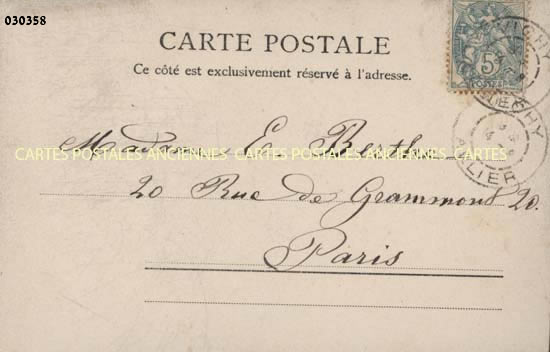 030358
CARTE POSTALE
Ce côté est exclusivement réservé à l'adresse.
5
POSTES
VICHY
VICHY
ALLIER
Madame E. Berthe
CARTES POSTALES ANCIENNES CARTES POSTALES ANCIENNES CARTES
20 Rue de Grammont 20.
Paris